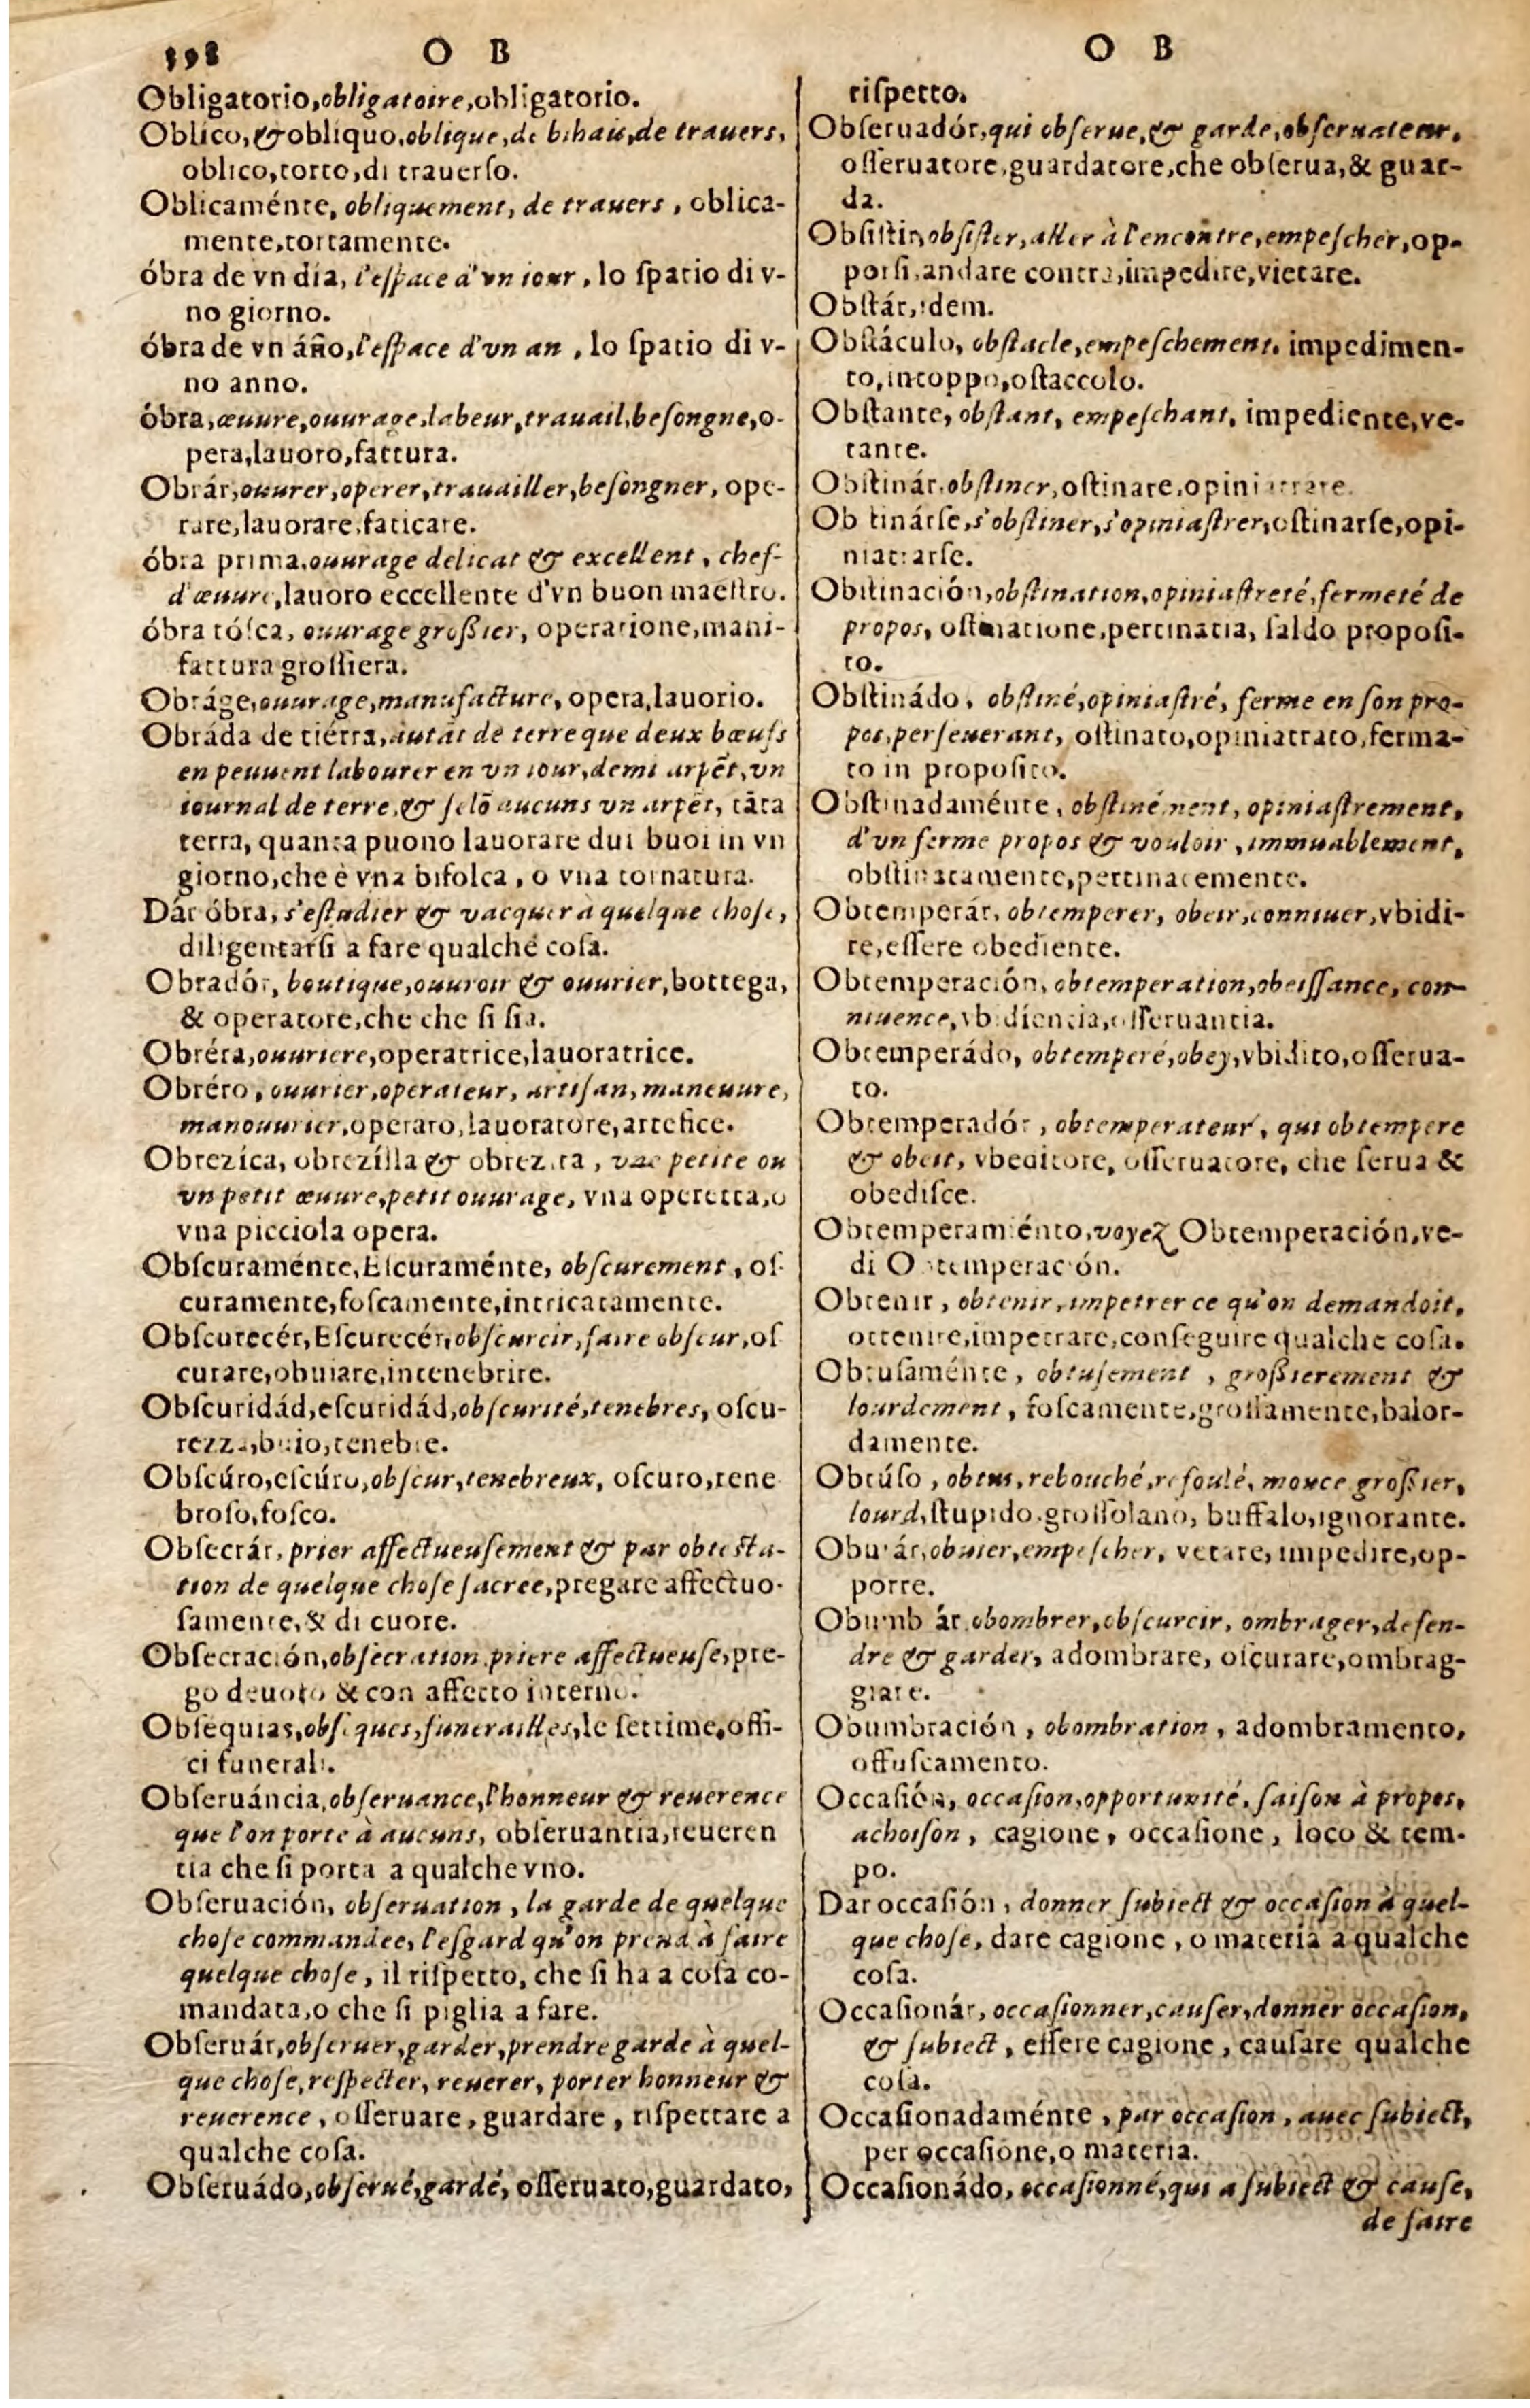 398 O B
Obligatorio,obligatoire,obligatorio.
Oblico,&obliquo,oblique,de bihais,de trauers,
oblico,torto,di trauerſo.
Oblicaménte, obliquement, de trauers, oblica-
mente,tortamente.
óbra de vn día, l'eſpace d'vn iour, lo ſpatio di v-
no giorno.
óbra de vn áño,l'eſpace d'vn an, lo ſpatio di v-
no anno.
óbra,œuure,ouurage,labeur,trauail,beſongne,o-
pera,lauoro,fattura.
Obrár,ouurer,operer,trauailler,beſongner, ope-
rare,lauorare,faticare.
óbra prima,ouurage delicat & excellent, chef-
d'œuure,lauoro eccellente d'vn buon maeſtro.
óbra tóſca, ouurage großier, operatione,mani-
fattura groſſiera.
Obráge,ouurage,manufacture, opera,lauorio.
Obráda de tiérra,autāt de terre que deux bœufs
en peuuent labourer en vn iour,demi arpēt,vn
iournal de terre,& ſelō aucuns vn arpēt, tāta
terra, quanta puono lauorare dui buoi in vn
giorno,che è vna bifolca, o vna tornatura.
Dár óbra, s'eſtudier & vacquer à quelque choſe,
diligentarſi a fare qualche coſa.
Obradór, boutique,ouuroir & ouurier,bottega,
& operatore,che che ſi ſia.
Obréra,ouuriere,operatrice,lauoratrice.
Obréro, ouurier,operateur, artiſan,maneuure,
manouurier,operaro,lauoratore,artefice.
Obrezíca, obrezílla & obrezita, vne petite ou
vn petit œuure,petit ouurage, vna operetta,o
vna picciola opera.
Obſcuraménte,Eſcuraménte, obſcurement, oſ-
curamente,foſcamente,intricatamente.
Obſcurecér,Eſcurecér,obſcurcir,faire obſcur,oſ
curare,obuiare,intenebrire.
Obſcuridád,eſcuridád,obſcurité,tenebres, oſcu-
rezza,buio,tenebre.
Obſcúro,eſcúro,obſcur,tenebreux, oſcuro,tene
broſo,foſco.
Obſecrár, prier affectueuſement & par obteſta-
tion de quelque choſe ſacree,pregare affectuo-
ſamente,& di cuore.
Obſecración,obſecration,priere affectueuſe,pre-
go deuoto & con affetto interno.
Obſequias,obſeques,funerailles,le ſettime,offi-
ci funerali.
Obſeruáncia,obſeruance,l'honneur & reuerence
que l'on porte à aucuns, obſeruantia,reueren
tia che ſi porta a qualche vno.
Obſeruación, obſeruation, la garde de quelque
choſe commandee, l'eſgard qu'on prend à faire
quelque choſe, il riſpetto, che ſi ha a coſa co-
mandata,o che ſi piglia a fare.
Obſeruár,obſeruer,garder,prendre garde à quel-
que choſe,reſpecter, reuerer, porter honneur &
reuerence, oſſeruare, guardare, riſpettare a
qualche coſa.
Obſeruádo,obſerué,gardé, oſſeruato,guardato,
O B
riſpetto.
Obſeruadór,qui obſerue,& garde,obſeruateur,
oſſeruatore,guardatore,che obſerua,& guar-
da.
Obſiſtir,obſiſter,aller à l'encontre,empeſcher,op-
porſi,andare contra,impedire,vietare.
Obſtár,idem.
Obſtáculo, obſtacle,empeſchement, impedimen-
to,intoppo,oſtaccolo.
Obſtante, obſtant, empeſchant, impediente,ve-
tante.
Obſtinár,obſtiner,oſtinare,opiniatrare.
Obſtinárſe,s'obſtiner,s'opiniaſtrer,oſtinarſe,opi-
niatrarſe.
Obſtinación,obſtination,opiniaſtreté,fermeté de
propos, oſtinatione,pertinatia, ſaldo propoſi-
to.
Obſtinádo, obſtiné,opiniaſtré, ferme en ſon pro-
pos,perſeuerant, oſtinato,opiniatrato,ferma-
to in propoſito.
Obſtinadaménte, obſtinément, opiniaſtrement,
d'vn ferme propos & vouloir, immuablement,
obſtinatamente,pertinacemente.
Obtemperár, obtemperer, obeir,conniuer,vbidi-
re,eſſere obediente.
Obtemperación, obtemperation,obeiſſance, con-
niuence,vbidientia,oſſeruantia.
Obtemperádo, obtemperé,obey,vbidito,oſſerua-
to.
Obtemperadór, obtemperateur, qui obtempere
& obeit, vbeditore, oſſeruatore, che ſerua &
obediſce.
Obtemperamiénto,voyez Obtemperación,ve-
di Obtemperación.
Obtenir, obtenir,impetrer ce qu'on demandoit,
ottenire,impetrare,conſeguire qualche coſa.
Obtuſaménte, obtuſement, großierement &
lourdement, foſcamente,groſſamente,balor-
damente.
Obtúſo, obtus,rebouché,refoulé, mouce großier,
lourd,ſtupido,groſſolano, buffalo,ignorante.
Obuiár,obuier,empeſcher, vetare, impedire,op-
porre.
Obumbrár,obombrer,obſcurcir, ombrager,defen-
dre & garder, adombrare, oſcurare,ombrag-
giare.
Obumbración, obombration, adombramento,
offuſcamento.
Occaſión, occaſion,opportunité, ſaiſon à propos,
achoiſon, cagione, occaſione, loco & tem-
po.
Dar occaſión, donner ſubiect & occaſion à quel-
que choſe, dare cagione, o materia a qualche
coſa.
Occaſionár, occaſionner,cauſer,donner occaſion,
& ſubiect, eſſere cagione, cauſare qualche
coſa.
Occaſionadaménte, par occaſion, auec ſubiect,
per occaſione,o materia.
Occaſionádo, occaſionné,qui a ſubiect & cauſe,
de faire